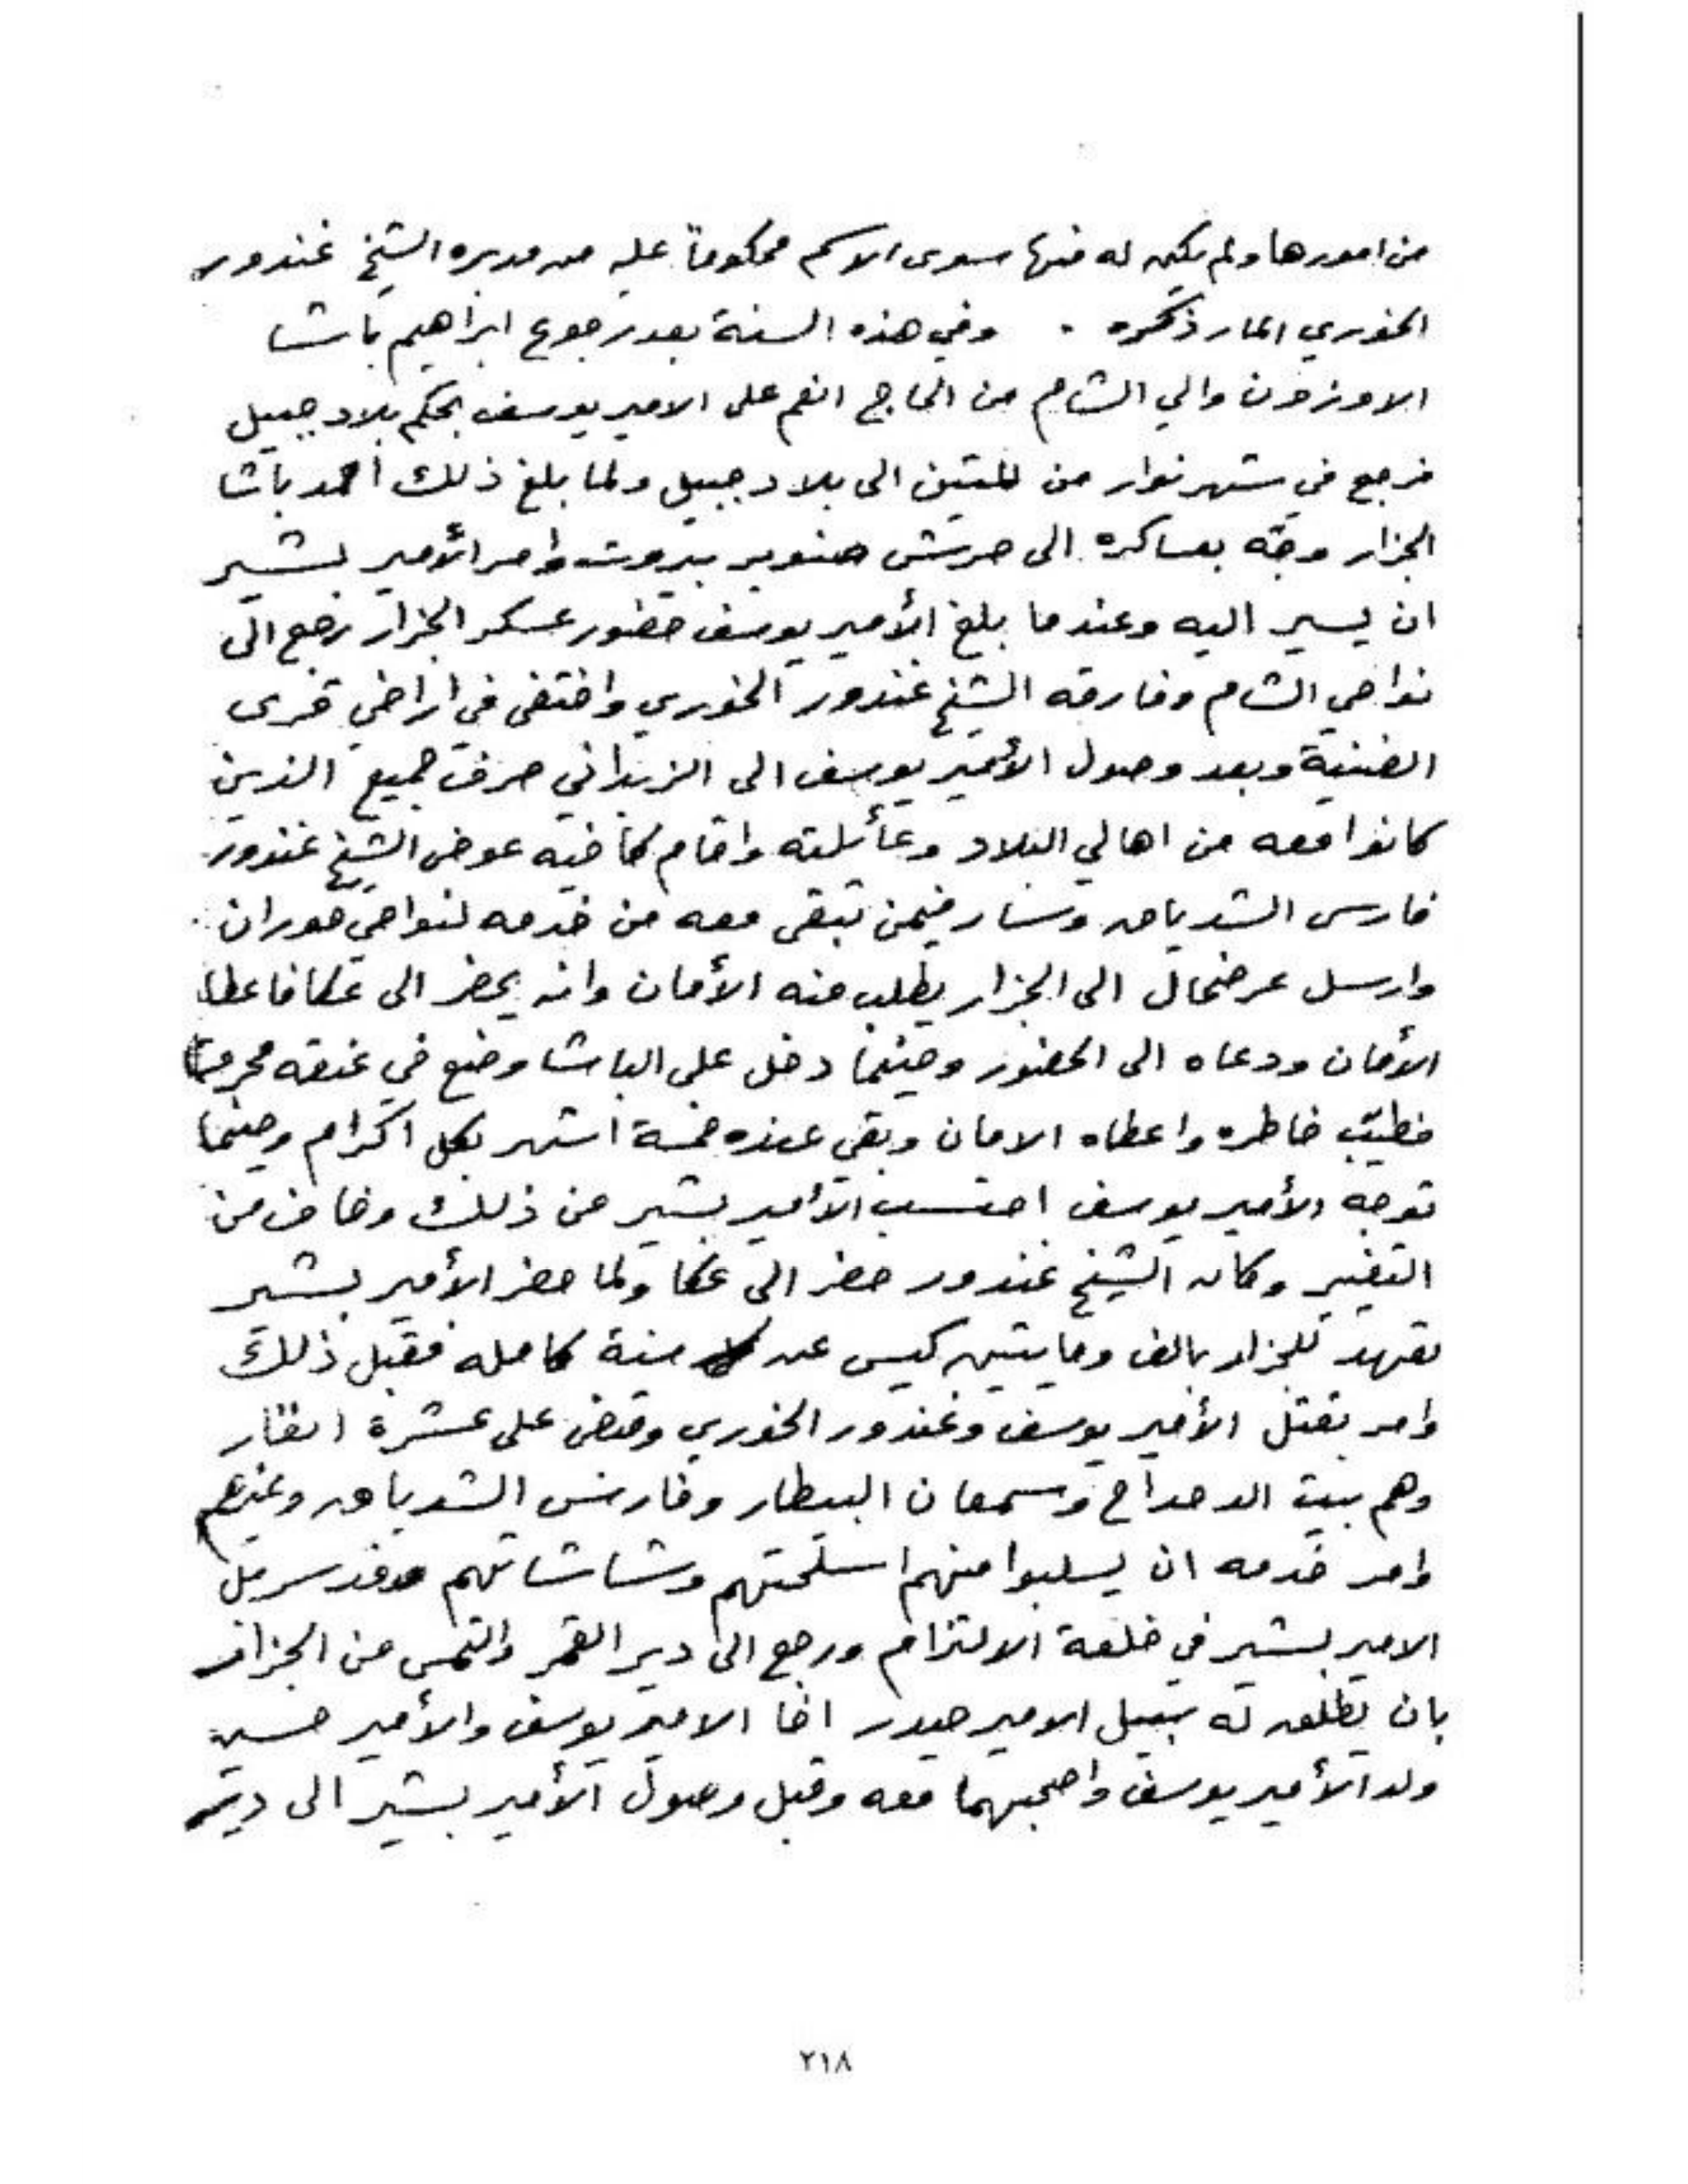 من امورها ولم يكن له منها سوى الاسم محكوماً عليه من مدبره الشيخ غندور
الخوري المار ذكره . وفي هذه السنة بعد رجوع ابراهيم باشا
الاوزون والي الشام من الحاج انعم على الامير يوسف بحكم بلاد جبيل
فرجع في شهر نوار من المتين الى بلاد جبيل ولما بلغ ذلك أحمد باشا
الجزار وجّه بعساكره الى حرش صنوبر بيروت وامر الأمير بشير
ان يسير اليه وعندما بلغ الأمير يوسف حضور عسكر الجزار رجع الى
نواحي الشام وفارقه الشيخ غندور الخوري واختفى في اراضي قرى
الضنية وبعد وصول الأمير يوسف الى الزبداني صرف جميع الذين
كانوا معه من اهالي البلاد وعائلته واقام كاخيه عوض الشيخ غندور
فارس الشدياق وسار فيمن تبقى معه من خدمه لنواحي حوران
وارسل عرضحال الى الجزار يطلب منه الأمان وانه يحضر الى عكا فاعطا
الأمان ودعاه الى الحضور وحينما دخل على الباشا وضع في عنقه محرمة
فطيّب خاطره واعطاه الامان وبقي عنده خمسة اشهر بكل اكرام وحينما
توجه الأمير يوسف احتسب الأمير بشير من ذلك وخاف من
التغيير وكان الشيخ غندور حضر الى عكا ولما حضر الأمير بشير
تعهد للجزار بالف ومايتين كيس عن سنة كامله فقبل ذلك
وامر بقتل الأمير يوسف وغندور الخوري وقبض على عشرة انفار
وهم بيت الدحداح وسمعان البيطار وفارس الشدياق وغيرهم
وامر خدمه ان يسلبوا منهم اسلحتهم وشاشاتهم وقد سربل
الامير بشير في خلعة الالتزام ورجع الى دير القمر والتمس من الجزار
بان يطلق له سبيل الامير حيدر اخا الامير يوسف والأمير حسين
ولد الأمير يوسف واصحبهما معه وقبل وصول الأمير بشير الى دير
٢١٨